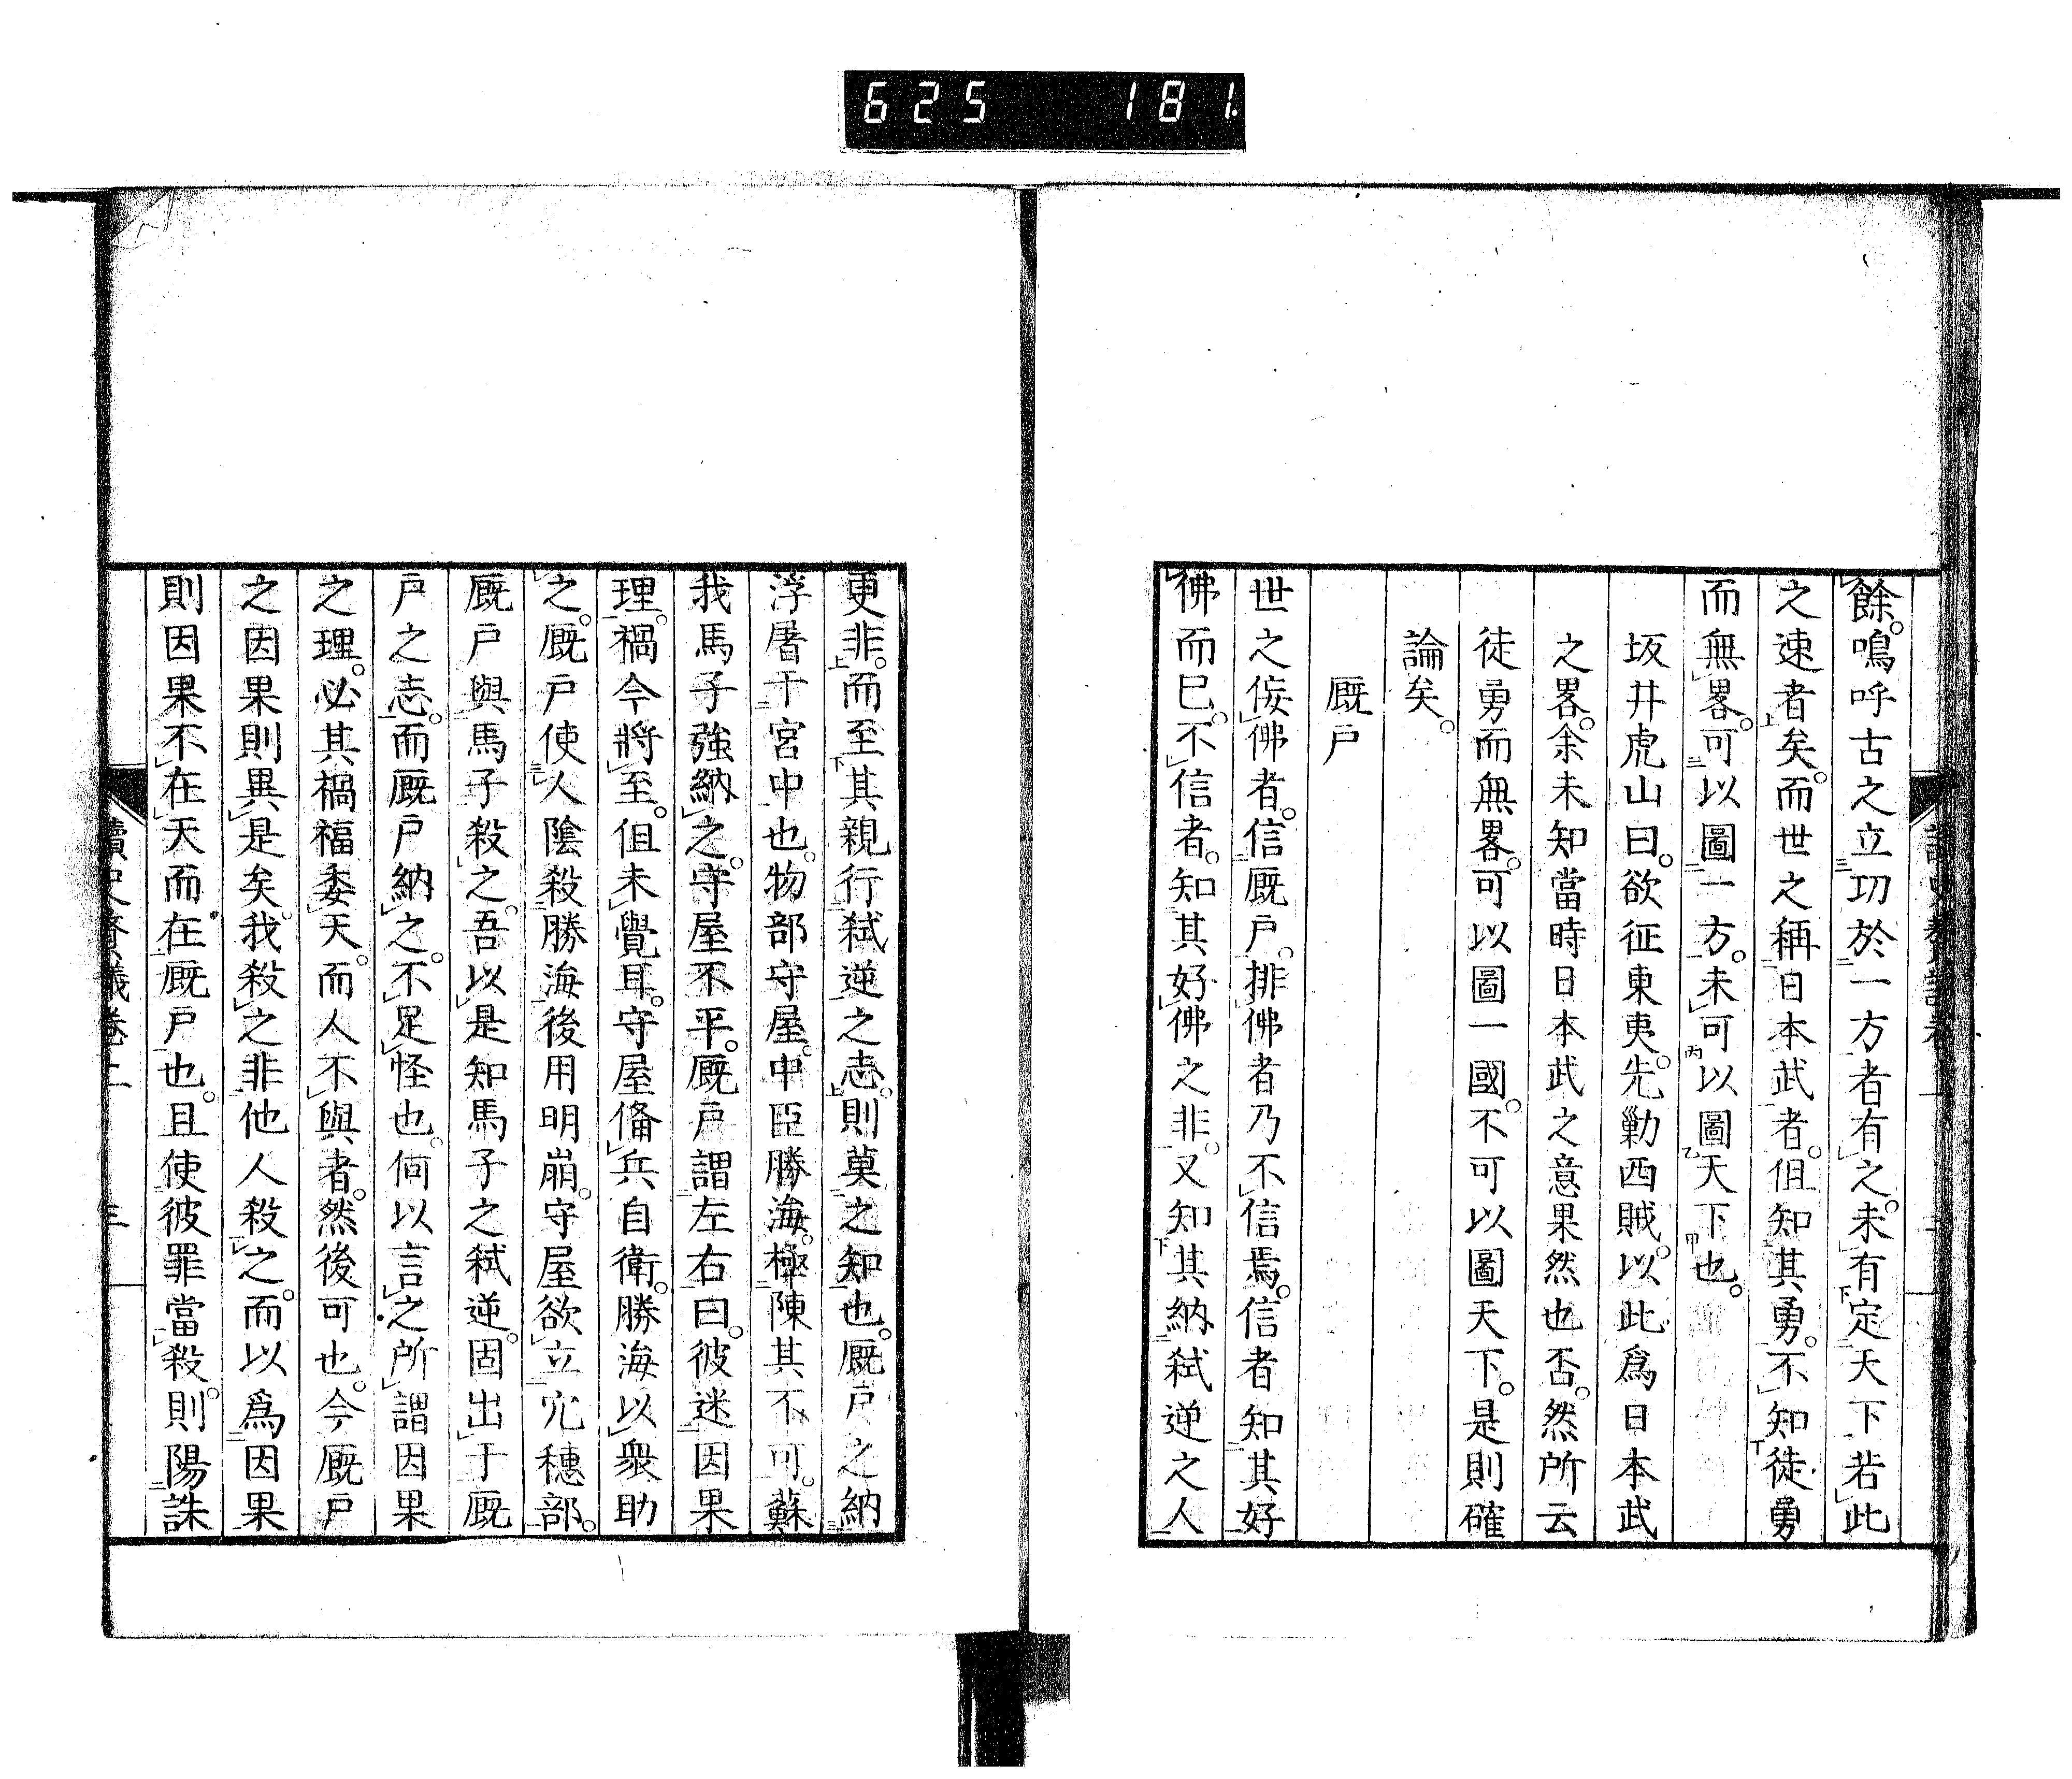 625 181.
餘。嗚呼古之立功於一方者有之。未有定天下若此
之速者矣。而世之稱日本武者。伹知其勇。不知徒勇
而無畧。可以圖一方。未可以圖天下也。
坂井虎山曰。欲征東夷。先勦西賊。以此爲日本武
之畧。余未知當時日本武之意果然也否。然所云
徒勇而無畧。可以圖一國。不可以圖天下。是則確
論矣。
厩戸
世之侫佛者。信厩戸。排佛者乃不信焉。信者知其好
佛而已。不信者。知其好佛之非。又知其納弑逆之人
更非。而至其親行弑逆之志。則莫之知也。厩戸之納
浮屠于宮中也。物部守屋。中臣勝海。極陳其不可。蘇
我馬子強納之。守屋不平。厩戸謂左右曰。彼迷因果
理。禍今將至。伹未覺耳。守屋俻兵自衛。勝海以衆助
之。厩戸使人陰殺勝海。後用明崩。守屋欲立穴穗部。
厩戸與馬子殺之。吾以是知馬子之弑逆。固出于厩
戸之志。而厩戸納之。不足怪也。何以言之。所謂因果
之理。必其禍福委天。而人不與者。然後可也。今厩戸
之因果則異是矣。我殺之非他人殺之。而以爲因果
則因果不在天而在厩戸也。且使彼罪當殺。則陽誅
讀史贅議卷上 三